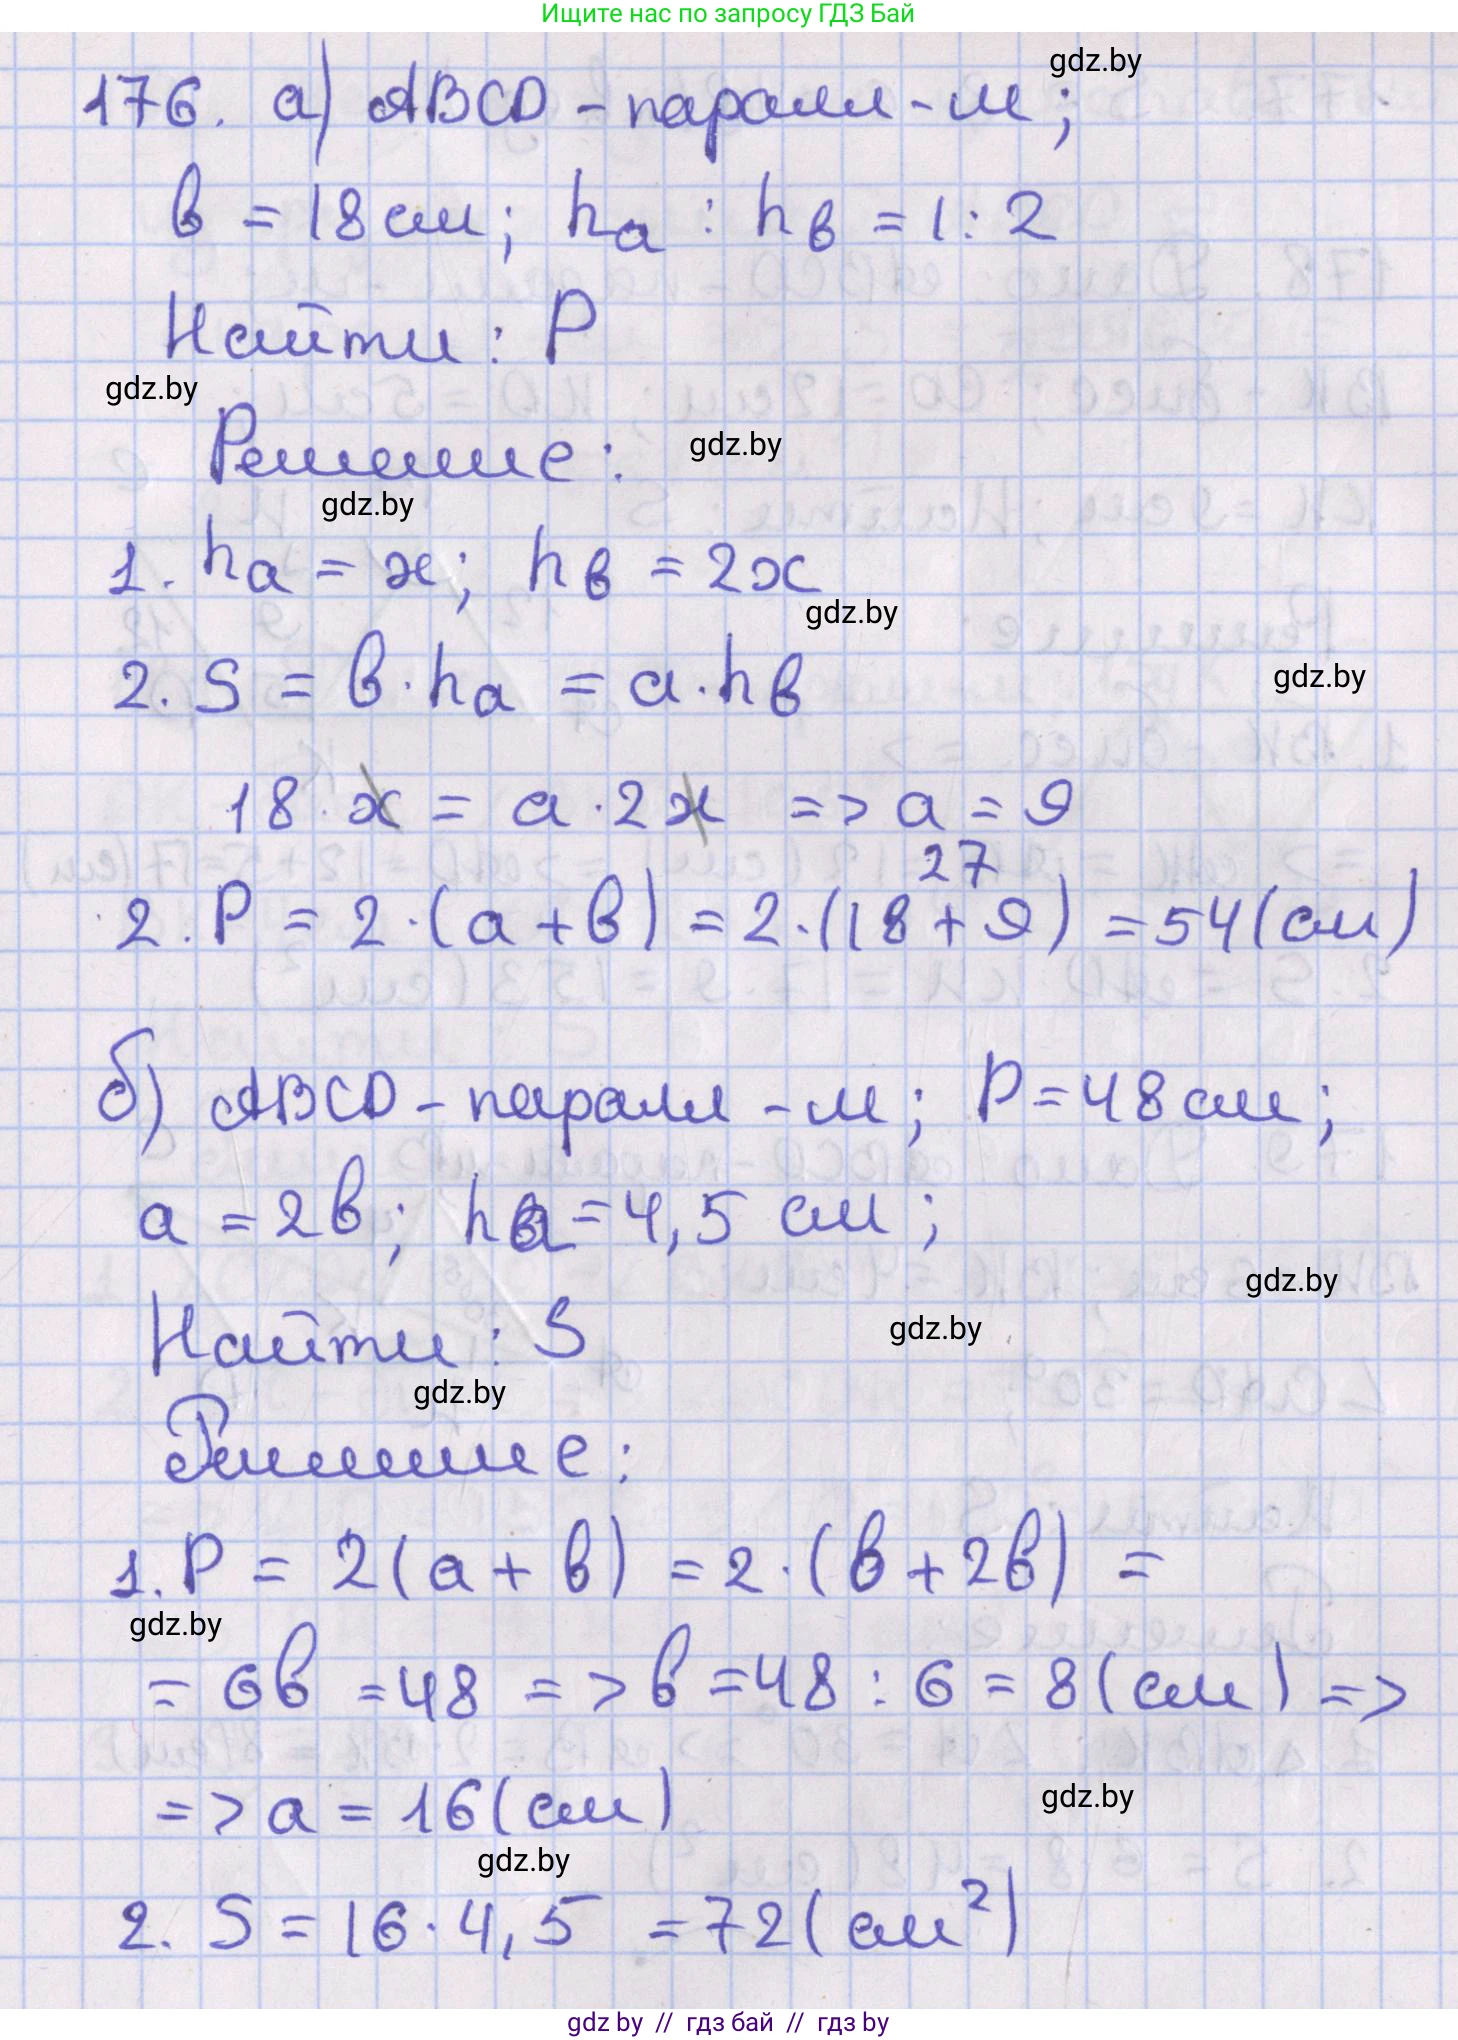 Ищите нас по запросу ГДЗ Бай
gdz.by
176. а) ABCD - паралл-м;
в = 18 см; hа : hв = 1 : 2
Найти: P
gdz.by
Решение:
gdz.by
gdz.by
1. hа = x; hв = 2x
gdz.by
2. S = в · hа = а · hв
gdz.by
18 · x = а · 2x => а = 9
27
2. P = 2 · (а + в) = 2 · (18 + 9) = 54 (см)
б) ABCD - паралл-м; P = 48 см;
а = 2в; hа = 4,5 см;
gdz.by
Найти: S
gdz.by
gdz.by
Решение:
1. P = 2(а + в) = 2 · (в + 2в) =
gdz.by
= 6в = 48 => в = 48 : 6 = 8 (см) =>
=> а = 16 (см)
gdz.by
gdz.by
2. S = 16 · 4,5 = 72 (см²)
gdz by // гдз бай // гдз by